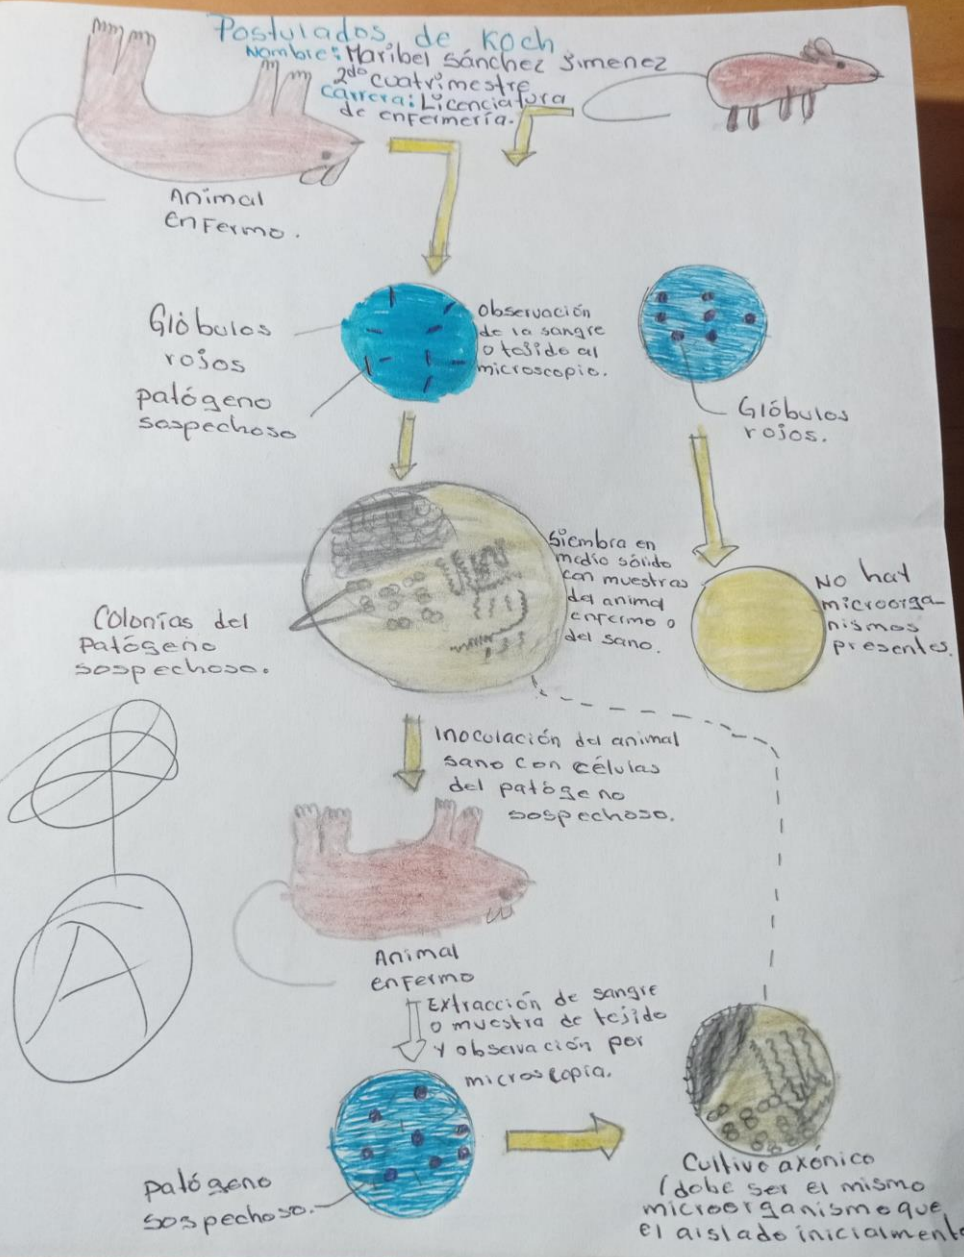 Postulados de Koch
Nombre: Maribel Sánchez Jimenez
2do cuatrimestre
carrera: Licenciatura
de enfermería.
Animal
enfermo.
Glóbulos
rojos
patógeno
sospechoso
Observación
de la sangre
o tejido al
microscopio.
Glóbulos
rojos.
Siembra en
medio sólido
con muestras
del animal
enfermo o
del sano.
NO hay
microorga-
nismos
presentes.
Colonías del
Patógeno
sospechoso.
Inoculación del animal
sano con células
del patógeno
sospechoso.
Animal
enfermo
Extracción de sangre
o muestra de tejido
y observación por
microscopía.
patógeno
sospechoso.
Cultivo axónico
(dobe ser el mismo
microorganismo que
el aislado inicialment
A